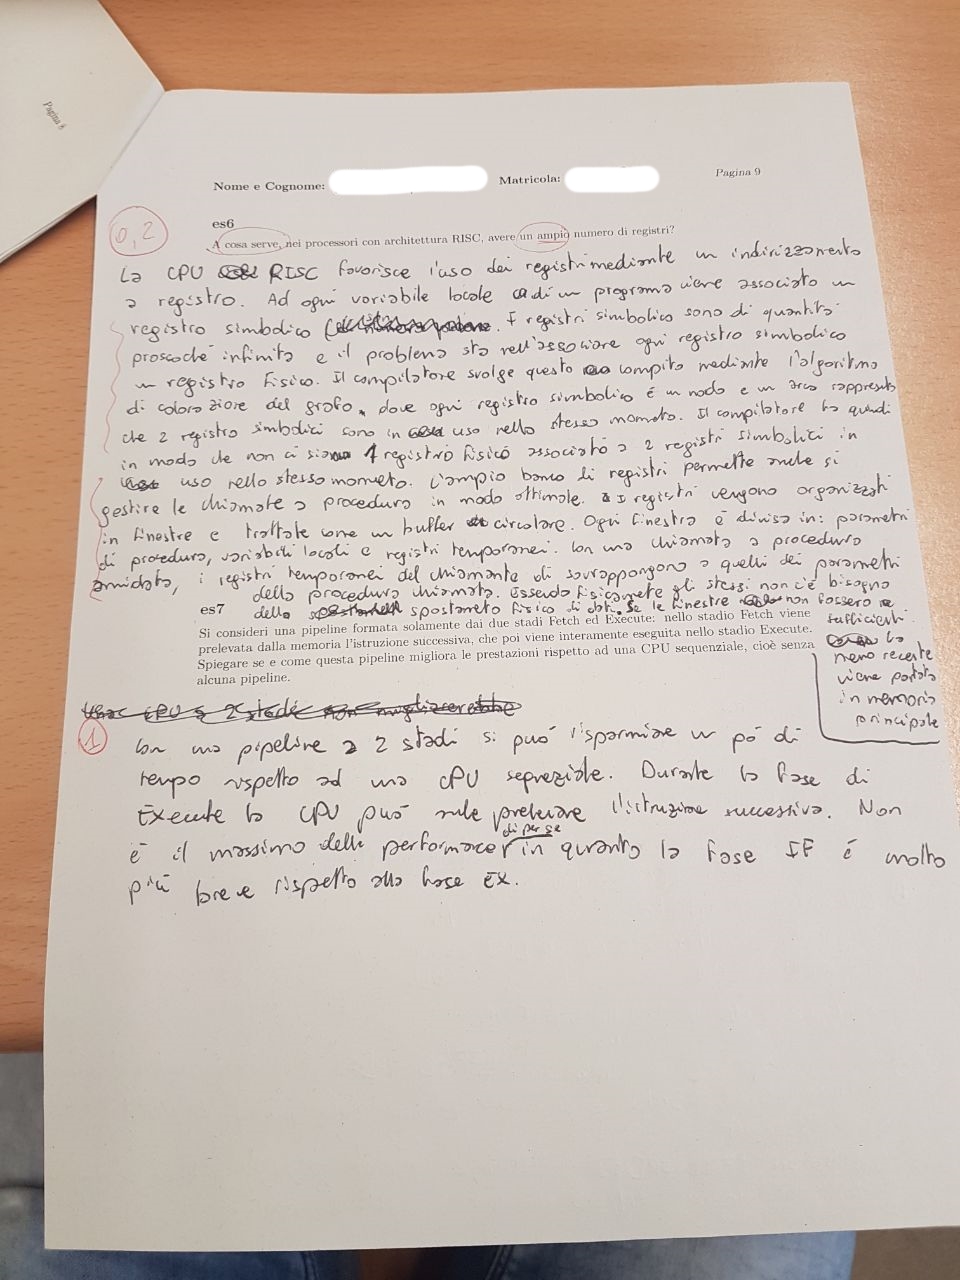 Pagina 8
Nome e Cognome: Matricola: Pagina 9
0,2
es6
A cosa serve, nei processori con architettura RISC, avere un ampio numero di registri?
La CPU RISC favorisce l'uso dei registri mediante un indirizzamento
a registro. Ad ogni variabile locale di un programa viene associato un
registro simbolico. I registri simbolico sono di quantità
pressoché infinita e il problema sta nell'associare ogni registro simbolico
un registro fisico. Il compilatore svolge questo compito mediante l'algoritmo
di colorazione del grafo, dove ogni registro simbolico é un nodo e un arco rappresenta
che 2 registro simbolici sono in uso nello stesso momento. Il compilatore fa quindi
in modo che non ci siano 1 registro fisico associato a 2 registri simbolici in
uso nello stesso momento. L'ampio banco di registri permette anche si
gestire le chiamate a procedura in modo ottimale. I registri vengono organizzati
in finestre e trattate come un buffer circolare. Ogni finestra é divisa in: parametri
di procedura, variabili locali e registri temporanei. Con una chiamata a procedura
annidata, i registri temporanei del chiamante di sovrappongono a quelli dei parametri
della procedura chiamata. Essendo fisicamente gli stessi non c'è bisogno
dello spostamento fisico di dati. Se le finestre non fossero
sufficienti. la
meno recente
viene portata
in memoria
principale
es7
Si consideri una pipeline formata solamente dai due stadi Fetch ed Execute: nello stadio Fetch viene
prelevata dalla memoria l'istruzione successiva, che poi viene interamente eseguita nello stadio Execute.
Spiegare se e come questa pipeline migliora le prestazioni rispetto ad una CPU sequenziale, cioè senza
alcuna pipeline.
Una CPU a 2 stadi non migliorerebbe
1
Con una pipeline a 2 stadi si può risparmiare un pó di
tempo rispetto ad una CPU seqneziale. Durante la fase di
Execute la CPU può anche prelevare l'istruzione successiva. Non
é il massimo delle performace di per se in quanto la fase IF é molto
più breve rispetto alla fase EX.